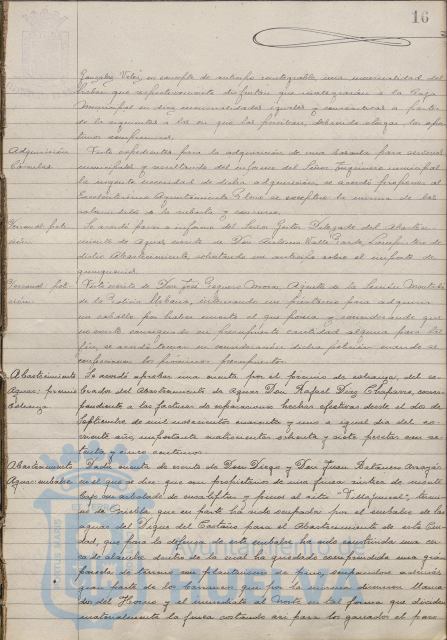 16
Gonzalez Velez, en concepto de anticipo reintegrable, una mensualidad del
haber que respectivamente disfrutan que reintegrarán a la Caja
Municipal en diez mensualidades iguales y consecutivas a partir
de la siguiente a la en que las perciban, debiendo otorgar los opor-
tunos compromisos.
Adquisición Visto expediente para la adquisición de una báscula para servicios
municipales y resultando del informe del Señor Ingeniero municipal
la urgente necesidad de dicha adquisición, se acordó proponer al
Excelentísimo Ayuntamiento Pleno se exceptúe la misma de las
solemnidades de la subasta y concurso.
Personal peti- Se acordó pasar a informe del Señor Gestor Delegado del Abasteci-
ción miento de Aguas escrito de Don Antonio Valle
dicho Abastecimiento, solicitando un anticipo sobre el importe de
quinquenios.
Personal peti- Visto escrito de Don José Peguero Mora, Agente de la Sección Montada
ción de la Policía Urbana, interesando un préstamo para adquirir
un caballo por haber muerto el que poseía y considerando que
no existe consignada en presupuesto cantidad alguna para tal
fin, se acordó tomar en consideración dicha petición cuando se
confeccionen los próximos presupuestos.
Abastecimiento Se acordó aprobar una cuenta por el premio de cobranza, del co-
Aguas: premio brador del Abastecimiento de Aguas Don Rafael Díaz Chaparro, corres-
cobranza pondiente a las facturas de reparaciones hechas efectivas desde el dos de
Septiembre de mil novecientos cuarenta y uno a igual día del co-
rriente año, importante cuatrocientas setenta y siete pesetas con se-
tenta y cinco céntimos.
Abastecimiento Dada cuenta de escrito de Don Diego y Don Juan
Aguas: embalse en el que se dice que son propietarios de una finca rústica de monte
bajo con arbolado de eucaliptus y pinos al sitio "Villajuncal", térmi-
no de Niebla, que en parte ha sido ocupada por el embalse de las
aguas del Dique del Castaño para el Abastecimiento de esta Ciu-
dad, que para la defensa de este embalse ha sido construida una cer-
ca de alambre dentro de la cual ha quedado comprendida una gran
parcela de terreno con plantaciones de pino, ocupándose además
gran parte de los barrancos que por la misma discurren llama-
dos del Horno y el inmediato al Norte en tal forma que divide
materialmente la finca cortando así para los ganados el paso
PORTUS MARIS
Ayuntamiento de
HUELVA